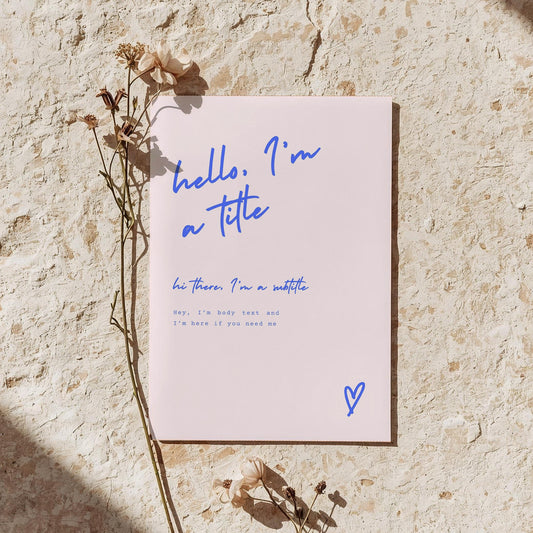 hello, I'm
a title
hi there, I'm a subtitle
Hey, I'm body text and
I'm here if you need me